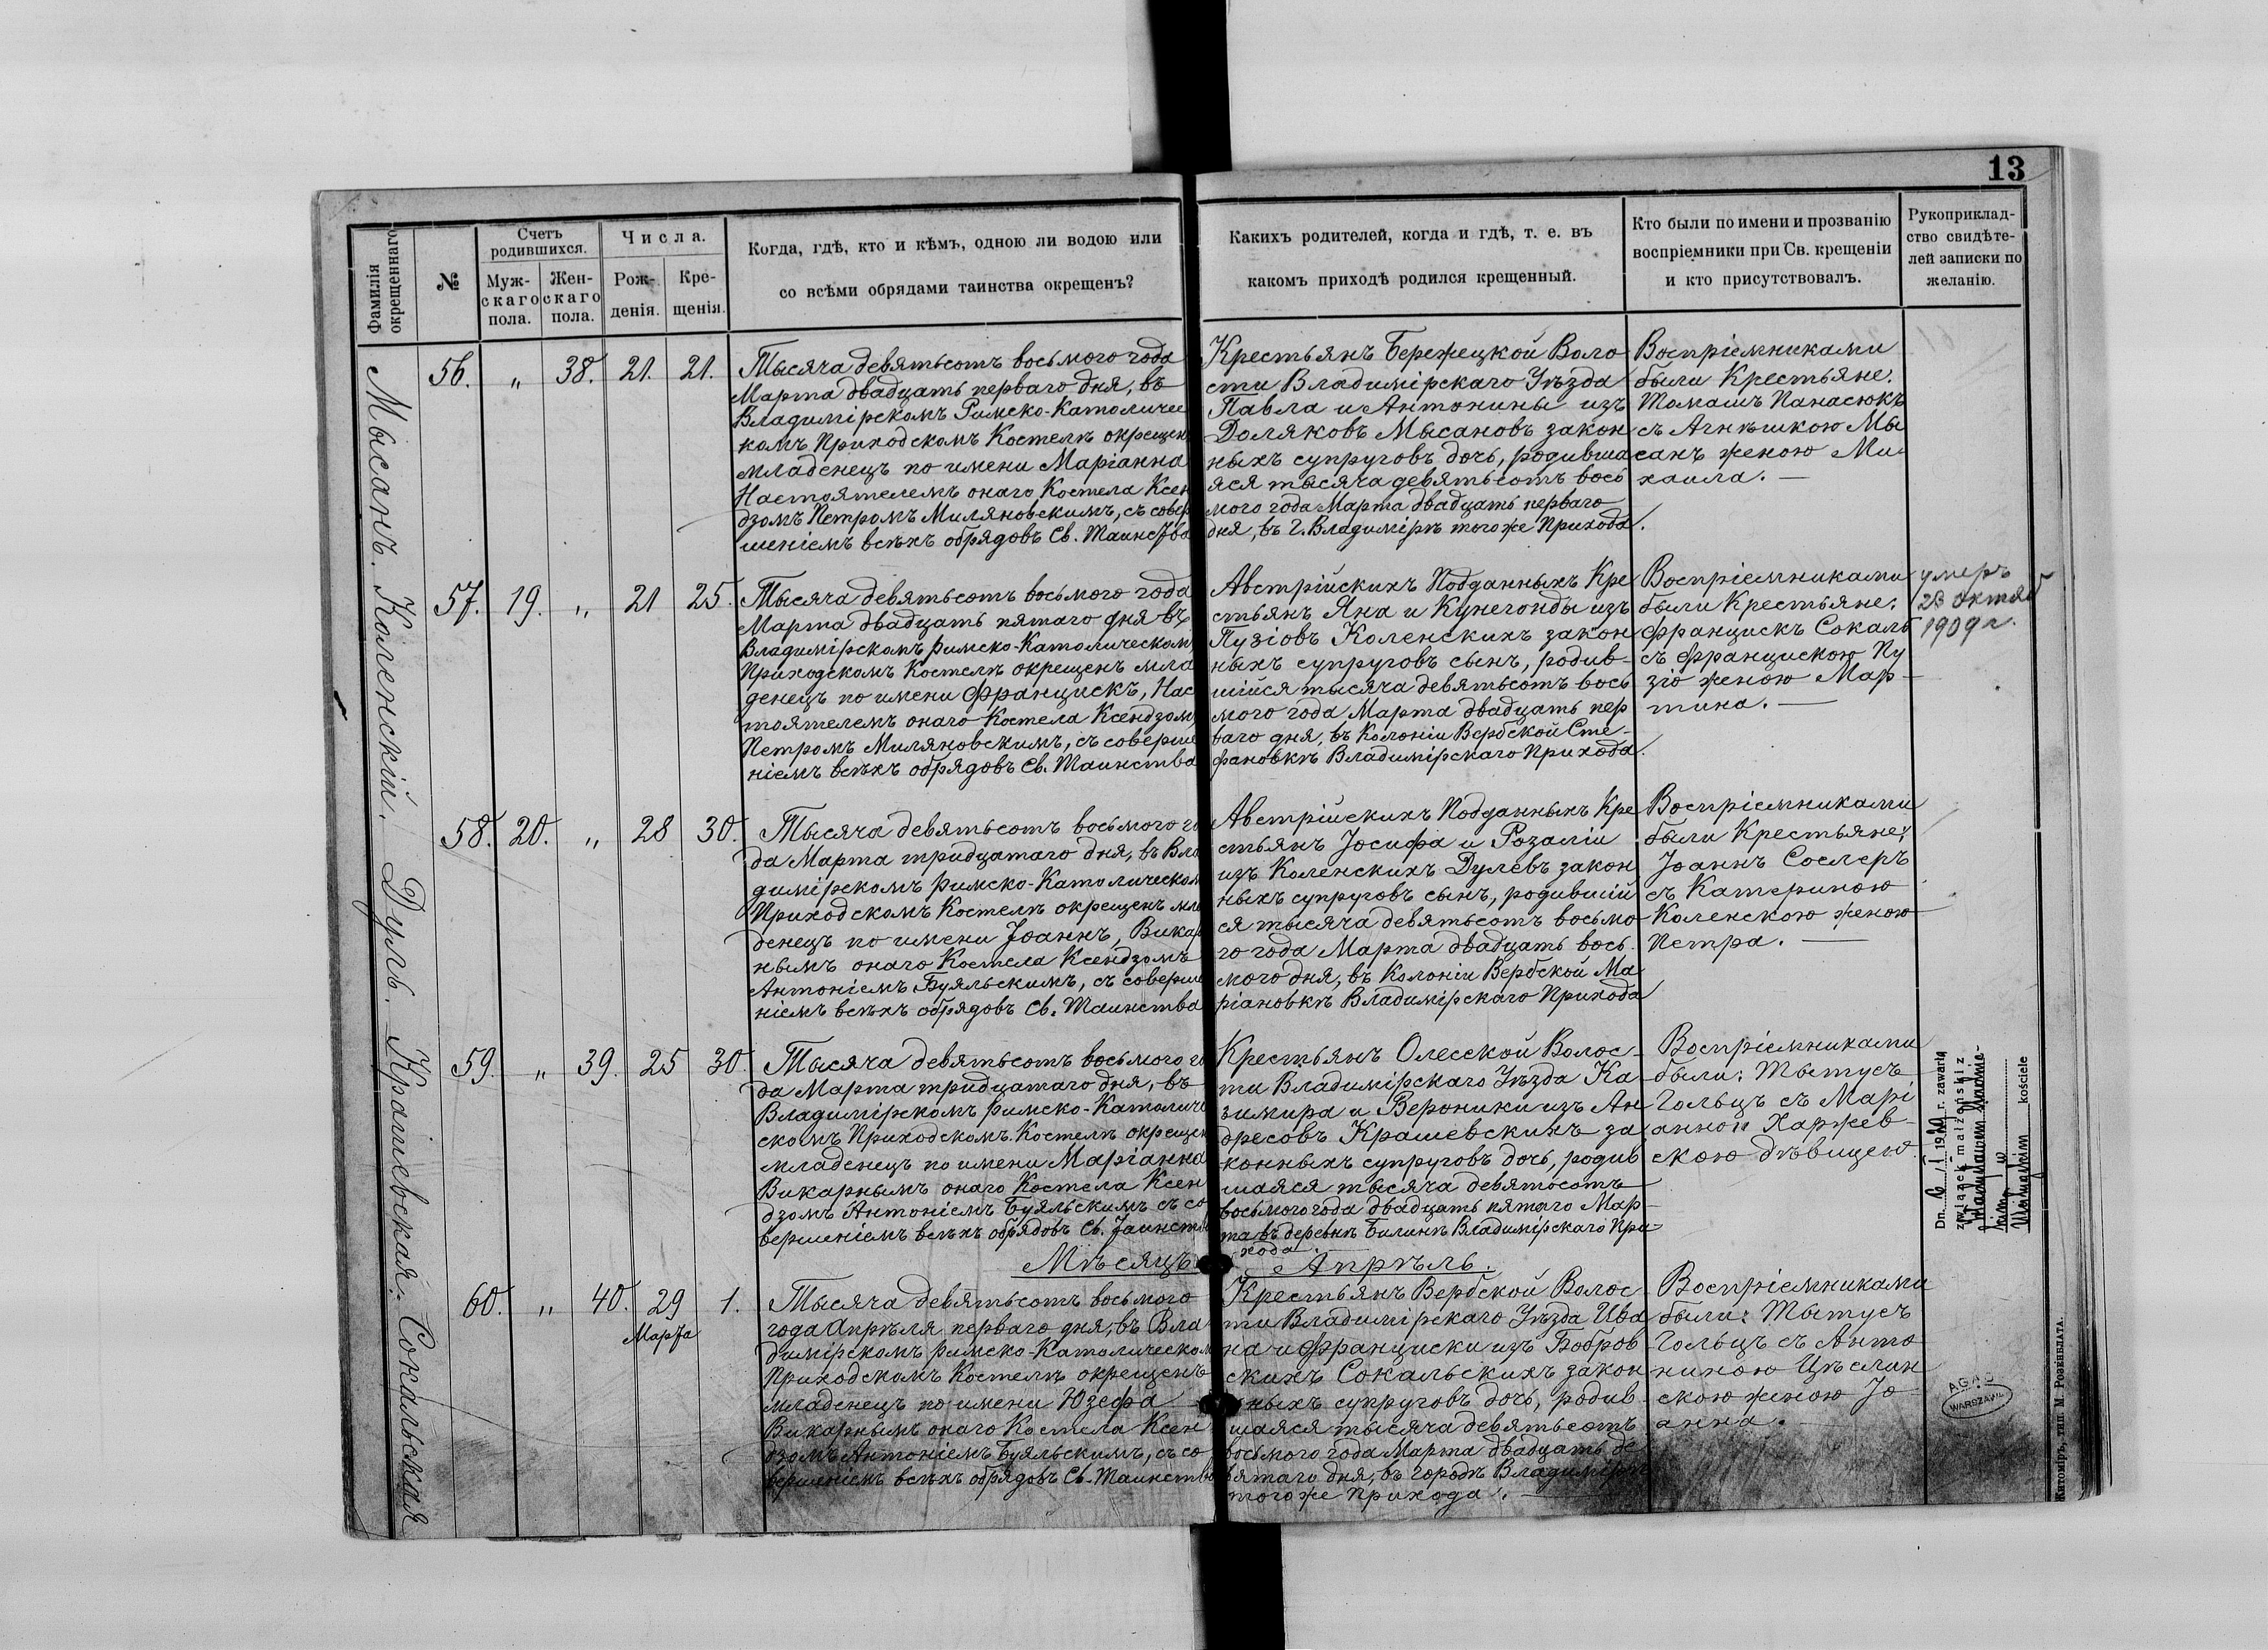 13
Фамилія окрещеннаго.
№
Счетъ родившихся.
Муж-скаго пола.
Жен-скаго пола.
Числа.
Рож-денія.
Кре-щенія.
Когда, гдѣ, кто и кѣмъ, одною ли водою или
со всѣми обрядами таинства окрещенъ?
Какихъ родителей, когда и гдѣ, т. е. въ
какомъ приходѣ родился крещенный.
Кто были по имени и прозванію
воспріемники при Св. крещеніи
и кто присутствовалъ.
Рукоприклад-
ство свидѣте-
лей записки по
желанію.
Мысанъ. Коленскій. Дуль. Крашевская. Сокальская
56. " 38. 21. 21.
Тысяча девятьсотъ восьмого года
Марта двадцать перваго дня, въ
Владимірскомъ Римско-Католичес
комъ Приходскомъ Костелѣ окрещен
младенецъ по имени Маріанна
Настоятелемъ онаго Костела Ксен
дзомъ Петромъ Миляновскимъ, съ совер
шеніемъ всѣхъ обрядовъ Св. Таинства
Крестьянъ Бережецкой Воло
сти Владимірскаго Уѣзда
Павла и Антонины изъ
Доляковъ Мысановъ закон
ныхъ супруговъ дочь, родивша
яся тысяча девятьсотъ вось
мого года Марта двадцать перваго
дня, въ Г. Владимірѣ того же Прихода.
Воспріемниками
были Крестьяне:
Томашъ Панасюкъ
съ Агнѣшкою Мы
санъ женою Ми-
хаила. —
57. 19. " 21 25.
Тысяча девятьсотъ восьмого года
Марта двадцать пятаго дня въ
Владимірскомъ Римско-Католическом
Приходскомъ Костелѣ окрещенъ мла
денецъ по имени Францискъ, Нас
тоятелемъ онаго Костела Ксендзом
Петромъ Миляновскимъ, съ соверше
ніемъ всѣхъ обрядовъ Св. Таинства
Австрійскихъ Подданныхъ Кре
стьянъ Яна и Кунегонды изъ
Пузіовъ Коленскихъ закон
ныхъ супруговъ сынъ, родив-
шійся тысяча девятьсотъ вось
мого года Марта двадцать пер
ваго дня, въ Колоніи Вербской Сте-
фановкѣ Владимірскаго Прихода.
Воспріемниками
были Крестьяне:
Францискъ Сокалъ
съ Францискою Пу
зіо женою Мар-
тина. —
умеръ
23 октяб
1909 г.
58. 20. " 28 30.
Тысяча девятьсотъ восьмого го
да Марта тридцатаго дня, въ Вла
димірскомъ Римско-Католическом
Приходскомъ Костелѣ окрещенъ мла
денецъ по имени Іоаннъ, Викар
нымъ онаго Костела Ксендзомъ
Антоніемъ Буяльскимъ, съ соверше
ніемъ всѣхъ обрядовъ Св. Таинства
Австрійскихъ Подданныхъ Кре
стьянъ Іосифа и Розаліи
изъ Коленскихъ Дулевъ закон
ныхъ супруговъ сынъ, родившій
ся тысяча девятьсотъ восьмо
го года Марта двадцать вось-
мого дня, въ Колоніи Вербской Ма
ріановкѣ Владимірскаго Прихода
Воспріемниками
были Крестьяне:
Іоаннъ Сослеръ
съ Катериною
Коленскою женою
Петра. —
59. " 39. 25 30.
Тысяча девятьсотъ восьмого го
да Марта тридцатаго дня, въ
Владимірскомъ Римско-Католиче
скомъ Приходскомъ Костелѣ окрещен
младенецъ по имени Маріанна
Викарнымъ онаго Костела Ксен
дзомъ Антоніемъ Буяльскимъ съ со
вершеніемъ всѣхъ обрядовъ Св. Таинства
Крестьянъ Олесской Волос-
ти Владимірскаго Уѣзда Ка
зимира и Вероники изъ Ан
дресовъ Крашевскихъ за
конныхъ супруговъ дочь, родив
шаяся тысяча девятьсотъ
восьмого года двадцать пятаго Мар-
та въ деревнѣ Билинѣ Владимірскаго При-
хода.
Воспріемниками
были: Тытусъ
Гольцъ съ Марі
анною Харжев-
скою дѣвицею.
Dn. r. zawarła
związek małżeński z
w
kościele
Мѣсяцъ Апрѣль.
60. " 40. 29 1.
Марта
Тысяча девятьсотъ восьмого
года Апрѣля перваго дня, въ Вла
димірскомъ Римско-Католическом
Приходскомъ Костелѣ окрещенъ
младенецъ по имени Юзефа
Викарнымъ онаго Костела Ксен
дзомъ Антоніемъ Буяльскимъ, съ со
вершеніемъ всѣхъ обрядовъ Св. Таинства
Крестьянъ Вербской Волос
ти Владимірскаго Уѣзда Ива
на и Франциски изъ Бобров
скихъ Сокальскихъ закон
ныхъ супруговъ дочь, родив-
шаяся тысяча девятьсотъ
восьмого года Марта двадцать де
вятаго дня, въ городѣ Владимірѣ
того же Прихода. —
Воспріемниками
были: Тытусъ
Гольцъ съ Анто
ниною Цѣслин
скою женою Іо-
анна.
AGAD
WARSZAWA
Житоміръ, тип. М. Розенблата.